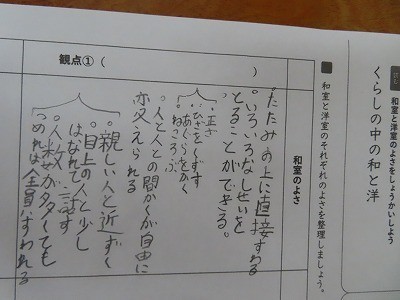 和室と洋室のよさをしょうかいしよう
くらしの中の和と洋
■和室と洋室のそれぞれのよさを整理しましょう。
和室のよさ
観点①（　　　）
・たたみの上に直接すわる
・いろいろなしせいを
とることができる。
・正ざ
ひざをくずす
あぐらをかく
ねころぶ
・人と人との間かくが自由に
変えられる
・親しい人と近ずく
・目上の人と少し
はなれて話す
・人数が多くても
つめれば全員すわれる